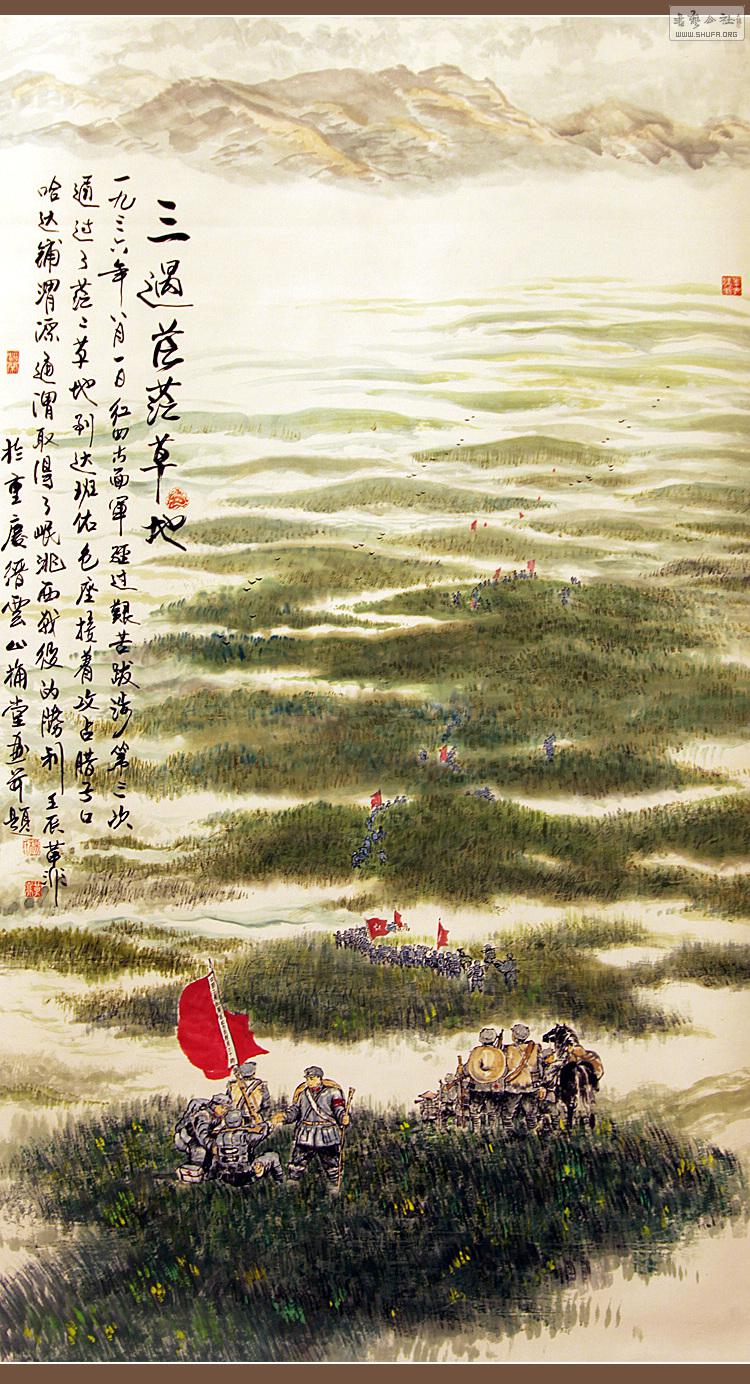 三过茫茫草地
一九三六年八月一日红四方面军经过艰苦跋涉第三次
通过了茫茫草地到达班佑包座接着攻占腊子口
哈达铺渭源通渭取得了岷洮西战役的胜利 壬辰革非
於重庆缙云山梅堂画并题
书艺公社
WWW.SHUFA.ORG